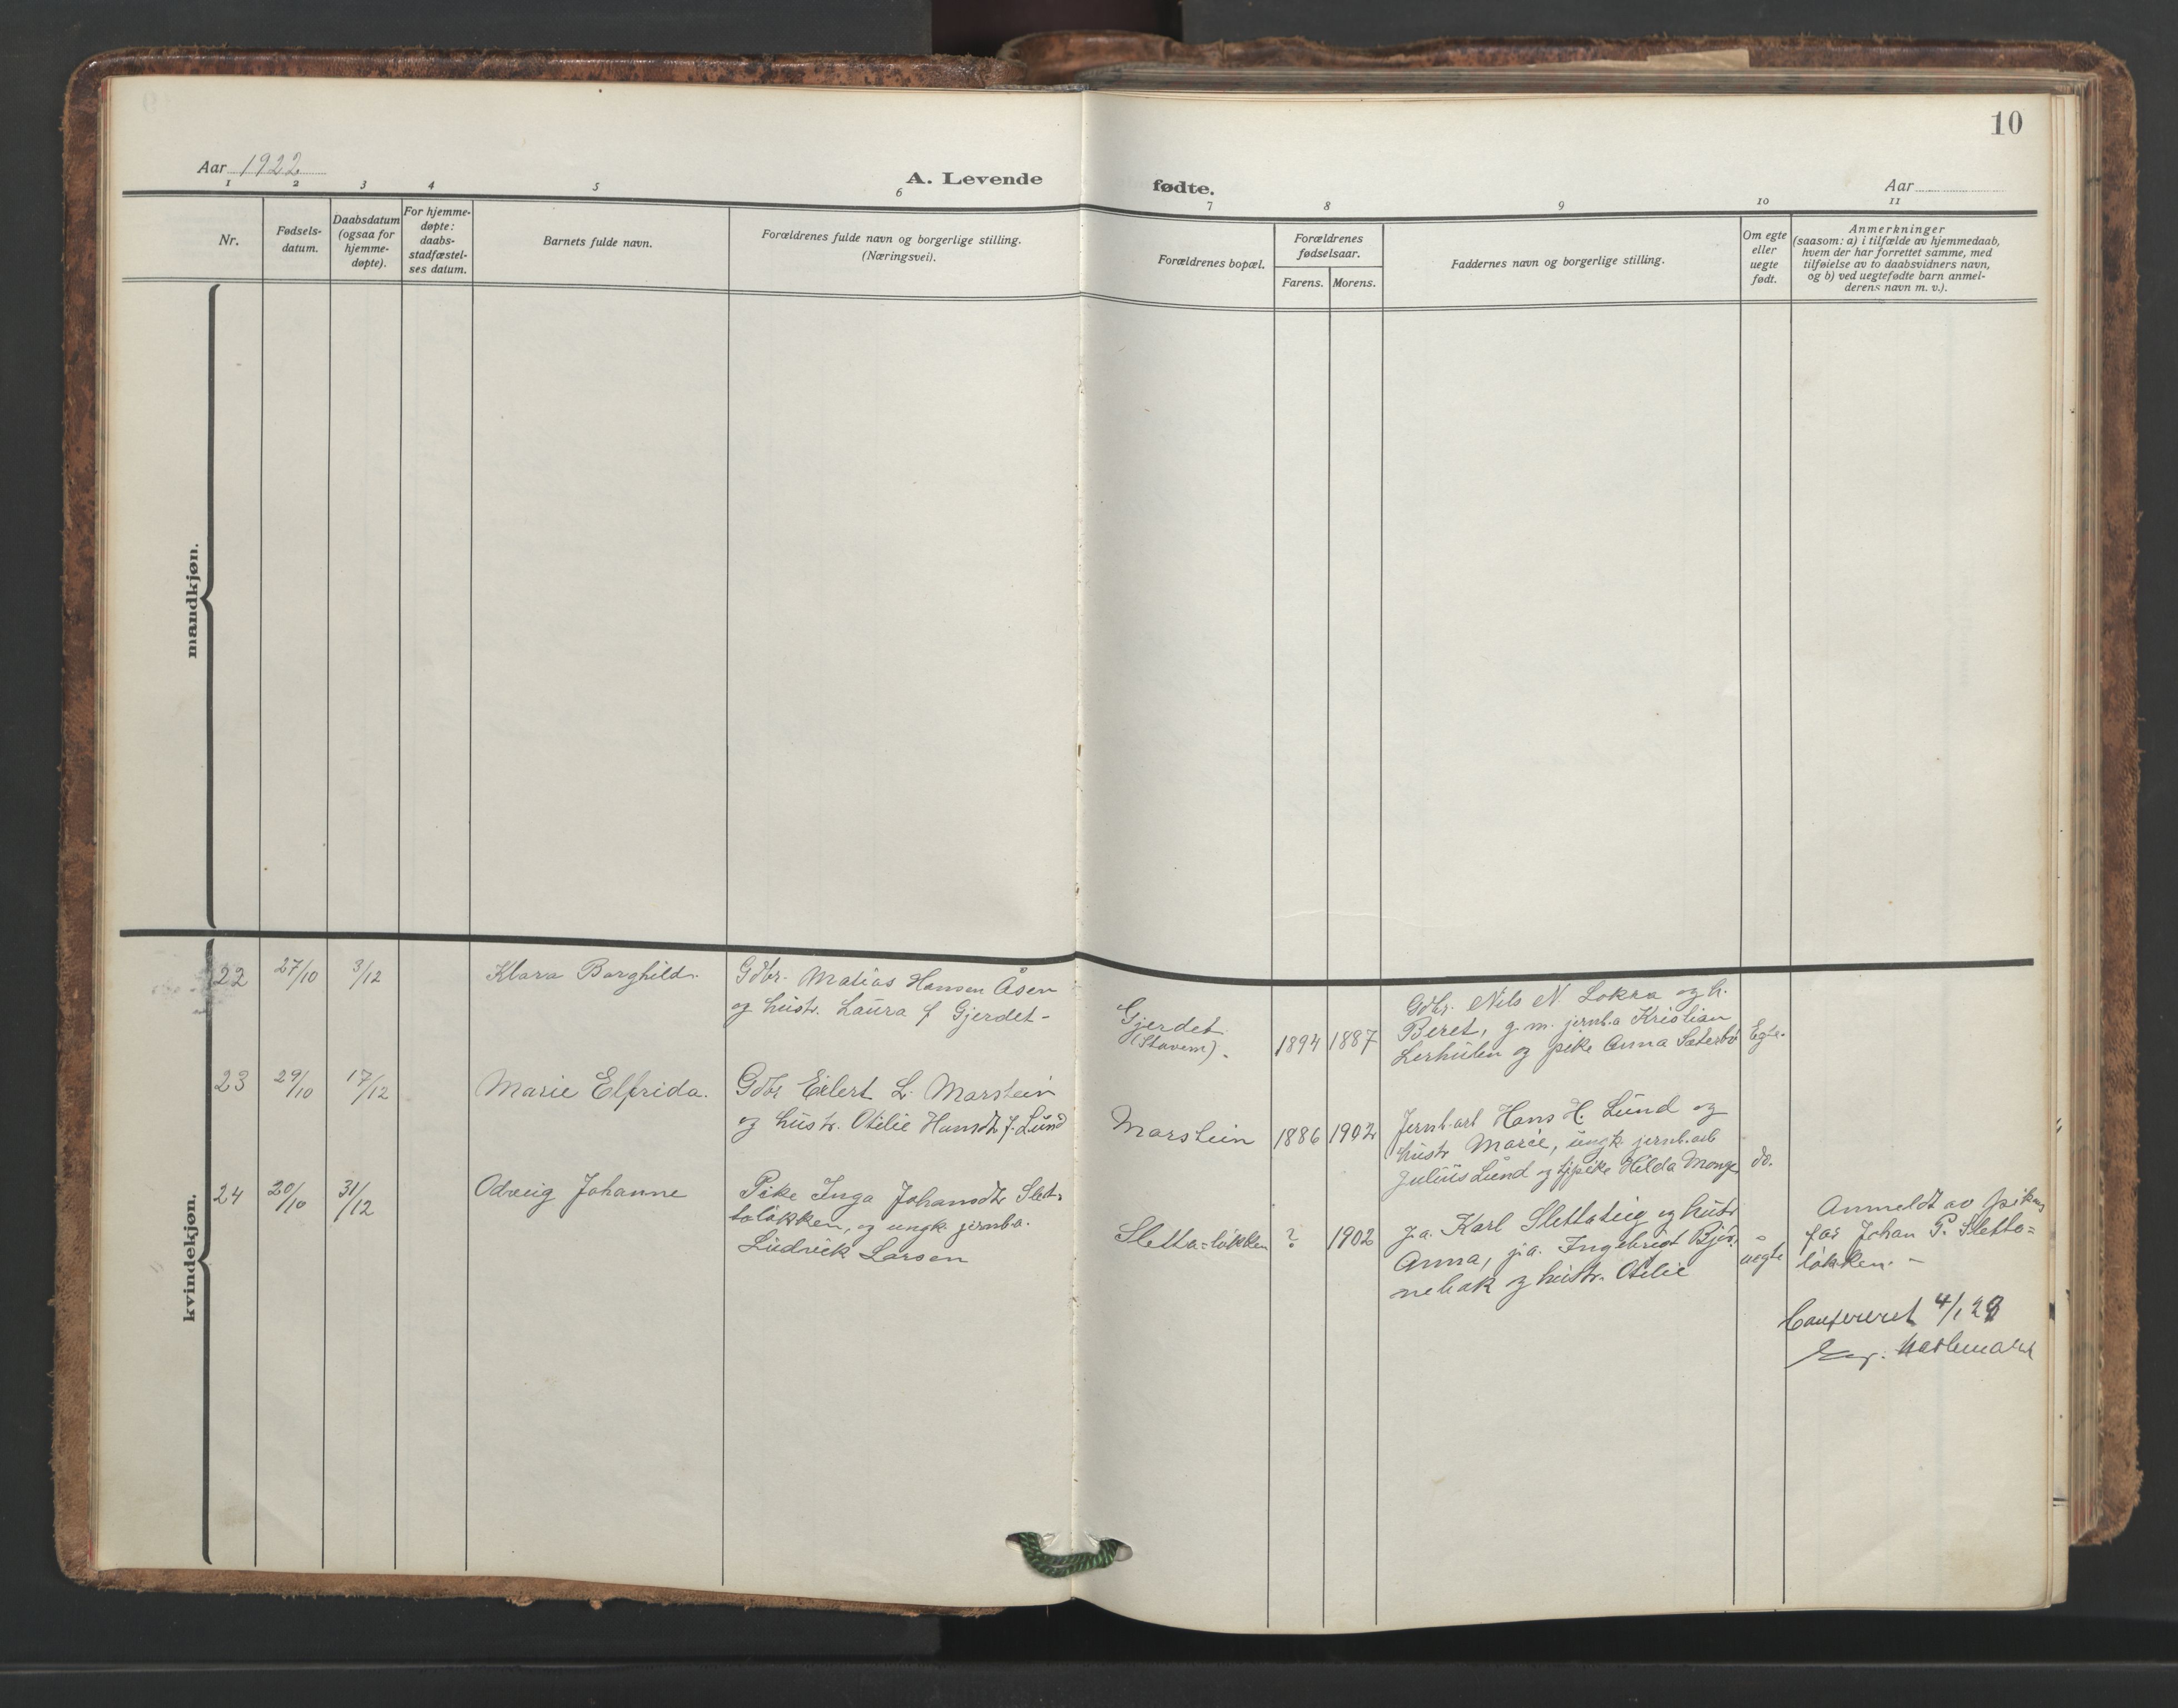 10
Aar 1922
A. Levende
fødte.
Aar
1 2 3 4 5 6 7 8 9 10 11
Nr.
Fødsels-
datum.
Daabsdatum
(ogsaa for
hjemme-
døpte).
For hjemme-
døpte:
daabs-
stadfæstel-
ses datum.
Barnets fulde navn.
Forældrenes fulde navn og borgerlige stilling.
(Næringsvei).
Forældrenes bopæl.
Forældrenes
fødselsaar.
Farens. Morens.
Faddernes navn og borgerlige stilling.
Om egte
eller
uegte
født.
Anmerkninger
(saasom: a) i tilfælde av hjemmedaab,
hvem der har forrettet samme, med
tilføielse av to daabsvidners navn,
og b) ved uegtefødte barn anmel-
derens navn m. v.).
mandkjøn.
kvindekjøn.
22 27/10 3/12 Klara Borghild.
Gdbr. Matias Hansen Åsen
og hustr. Laura f Gjerdet-
Gjerdet
(Stavem).
1894 1887
Gdbr. Nils N. Lokra og h.
Beret, g.m. jernb.a Kristian
Lerhulen og pike Anna Sæterbø
Egte.
23 29/10 17/12 Marie Elfrida.
Gdbr Eilert L. Marstein
og hustr. Otilie Hansdtr f. Lund
Marstein 1886 1902
Jernb.arb Hans H. Lund og
hustr Marie, ungk. jernb.arb
Julius Lund og tjpike Hilda Monge
do.
24 20/10 31/12 Odveig Johanne
Pike Inga Johansdtr Slet-
taløkken, og ungk. jernb.a.
Ludvik Larsen
Sletta=løkken ? 1902
J.a. Karl Slettateig og hustr
Anna, j.a. Ingebrigt Bjør-
nebak og hustr. Otilie
uegte
Anmeldt av pikens
far Johan P. Sletta=
løkken. -
Confereret 4/1 28